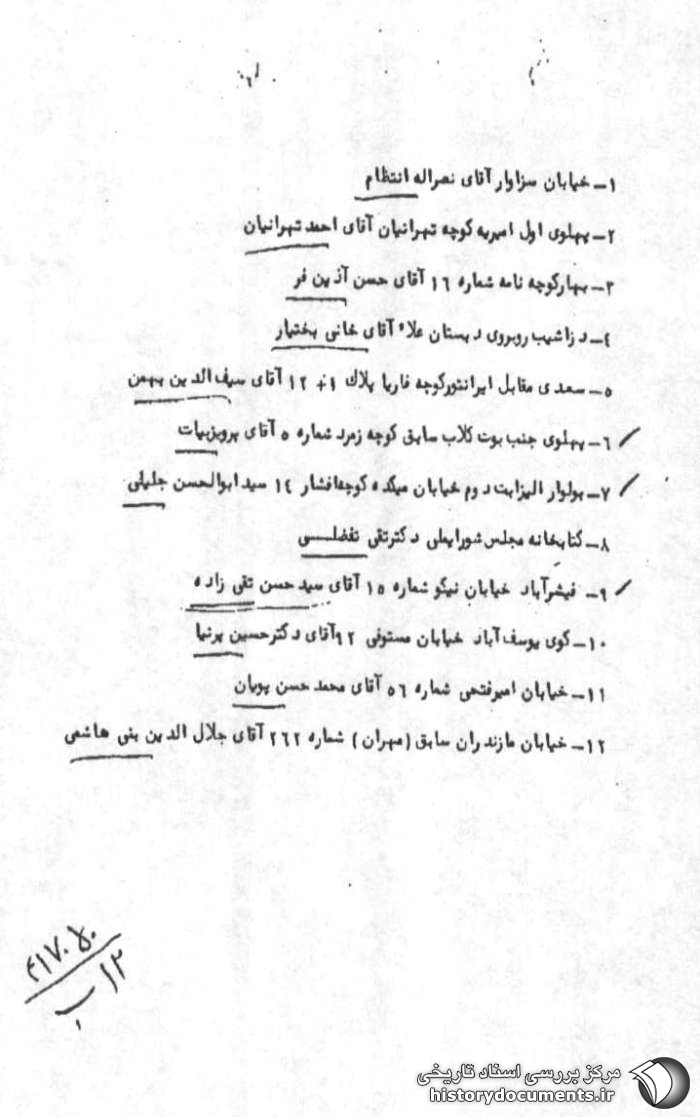 ۱- خیابان سزاوار آقای نصراله انتظام
۲- پهلوی اول امیریه کوچه تهرانیان آقای احمد تهرانیان
۳- بهارکوچه نامه شماره ۱۶ آقای حسن آذین فر
٤- دزاشیب روبروی دبستان علاء آقای خانی بختیار
۵- سعدی مقابل ایرانتورکوچه فاریا پلاک ۱+ ۱۲ آقای سیف الدین بهمن
۶- پهلوی جنب بوت کلاب سابق کوچه زمرد شماره ۵ آقای پرویزبیات
۷- بولوار الیزابت دوم خیابان میکده کوچه افشار ۱٤ سید ابوالحسن جلیلی
۸- کتابخانه مجلس شورایملی دکترتقی تفضلی
۹- فیشرآباد خیابان نیکو شماره ۱۵ آقای سید حسن تقی زاده
۱۰- کوی یوسف آباد خیابان مستوفی ۹۲ آقای دکترحسین پرنیا
۱۱- خیابان امیرفتحی شماره ۵۶ آقای محمد حسن پویان
۱۲- خیابان مازندران سابق (مهران) شماره ۲۶۲ آقای جلال الدین بنی هاشمی
۱۲
ب
مرکز بررسی اسناد تاریخی
historydocuments.ir